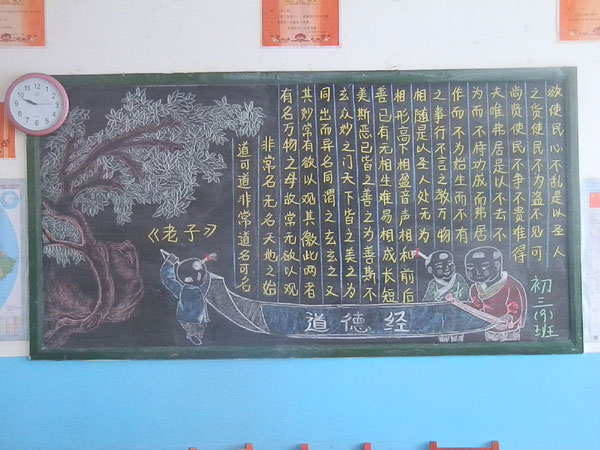 《老子》
道可道非常道名可名
非常名无名天地之始
有名万物之母故常无欲以观
其妙常有欲以观其徼此两者
同出而异名同谓之玄玄之又
玄众妙之门天下皆之美之为
美斯恶已皆之善之为善斯不
善已有无相生难易相成长短
相形高下相盈音声相和前后
相随是以圣人处无为
之事行不言之教万物
作而不为始生而不有
为而不恃功成而弗居
夫唯弗居是以不去不
尚贤使民不争不贵难得
之货使民不为盗不见可
欲使民心不乱是以圣人
道德经
初三(9)班